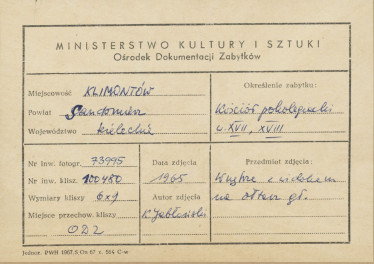 MINISTERSTWO KULTURY I SZTUKI
Ośrodek Dokumentacji Zabytków
Miejscowość KLIMONTÓW
Powiat Sandomierz
Województwo kieleckie
Określenie zabytku:
Kościół pokolegiacki
w. XVII, XVIII
Nr inw. fotogr. 73995
Nr inw. klisz. 100480
Wymiary kliszy 6x9
Miejsce przechow. kliszy
ODZ
Data zdjęcia
1965
Autor zdjęcia
K. Jabłoński
Przedmiot zdjęcia:
Wnętrze z widokiem
na ołtarz gł.
Jednor. PWH 1967.S.Os 67 z.